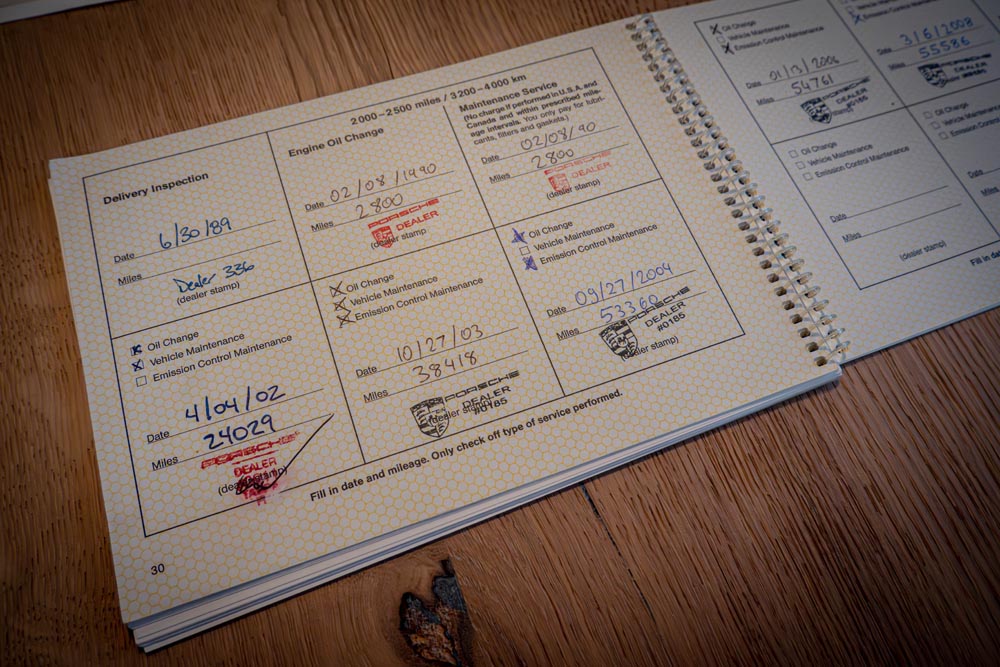 Delivery Inspection
6/30/89
Date
Miles
Dealer 336
(dealer stamp)
2 000 – 2 500 miles / 3 200 – 4 000 km
Engine Oil Change
Date 02/08/1990
Miles 2800
PORSCHE
DEALER
(dealer stamp)
Maintenance Service
(No charge if performed in U.S.A. and
Canada and within prescribed mile-
age intervals. You only pay for lubri-
cants, filters and gaskets.)
Date 02/08/90
Miles 2800
DEALER
(dealer stamp)
Oil Change
Vehicle Maintenance
Emission Control Maintenance
4/04/02
Date
24029
Miles
PORSCHE
DEALER
(dealer stamp)
Oil Change
Vehicle Maintenance
Emission Control Maintenance
10/27/03
Date
38418
Miles
PORSCHE
DEALER
#0185
(dealer stamp)
Oil Change
Vehicle Maintenance
Emission Control Maintenance
Date 09/27/2004
Miles 53360
PORSCHE
DEALER
#0185
(dealer stamp)
Fill in date and mileage. Only check off type of service performed.
30
Oil Change
Vehicle Maintenance
Emission Control Maintenance
Date 01/13/2006
Miles 54761
DEALER
#0185
Emission Control Maintenance
Date 3/6/2008
Miles 55586
DEALER
Oil Change
Vehicle Maintenance
Emission Control Maintenance
Date
Miles
(dealer stamp)
Oil Change
Vehicle Maintenance
Emission Control
Date
Miles
Fill in da